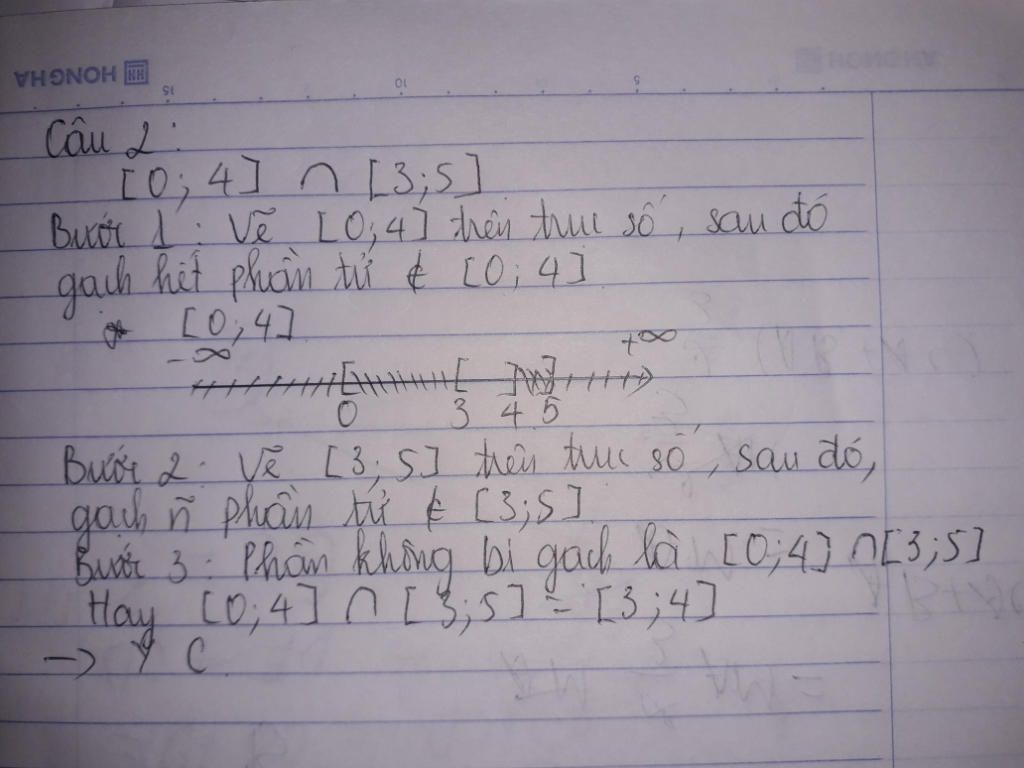 HONG HA
15
10
5
Câu 2:
[0; 4] ∩ [3; 5]
Bước 1: Vẽ [0; 4] trên trục số, sau đó
gạch hết phần tử ∉ [0; 4]
[0; 4]
-∞ +∞
0 3 4 5
Bước 2: Vẽ [3; 5] trên trục số, sau đó,
gạch ñ phần tử ∉ [3; 5]
Bước 3: Phần không bị gạch là [0; 4] ∩ [3; 5]
Hay [0; 4] ∩ [3; 5] = [3; 4]
→ Ý C